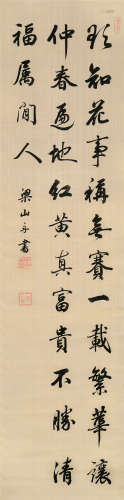 欲知花事稱無賽一載繁華讓
仲春遍地紅黃真富貴不勝清
福屬閒人
梁山舟書